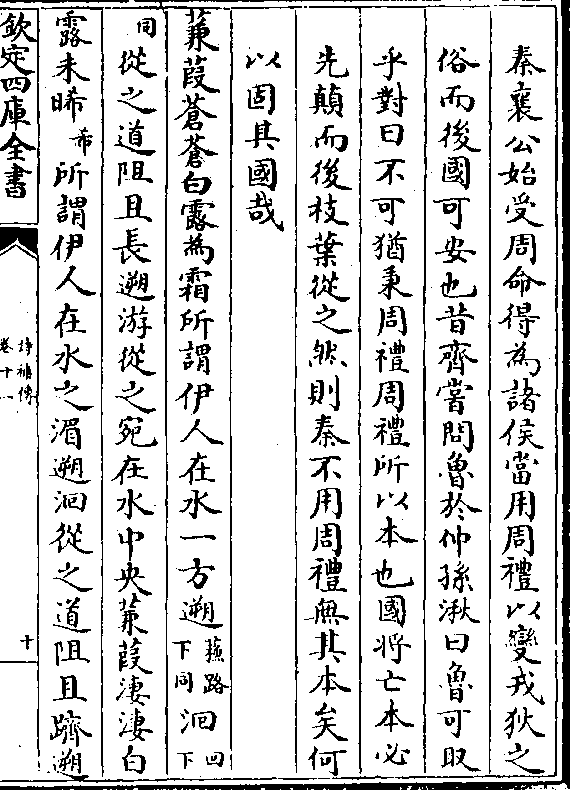 秦襄公始受周命得為諸侯當用周禮以變戎狄之
俗而後國可安也昔齊嘗問魯於仲孫湫曰魯可取
乎對曰不可猶秉周禮周禮所以本也國將亡本必
先顛而後枝葉從之然則秦不用周禮無其本矣何
以固其國哉
蒹葭蒼蒼白露為霜所謂伊人在水一方遡蘇路下同洄回下
同從之道阻且長遡游從之宛在水中央蒹葭淒淒白
露未晞希所謂伊人在水之湄遡洄從之道阻且躋遡
欽定四庫全書
詩補傳
卷十一
十